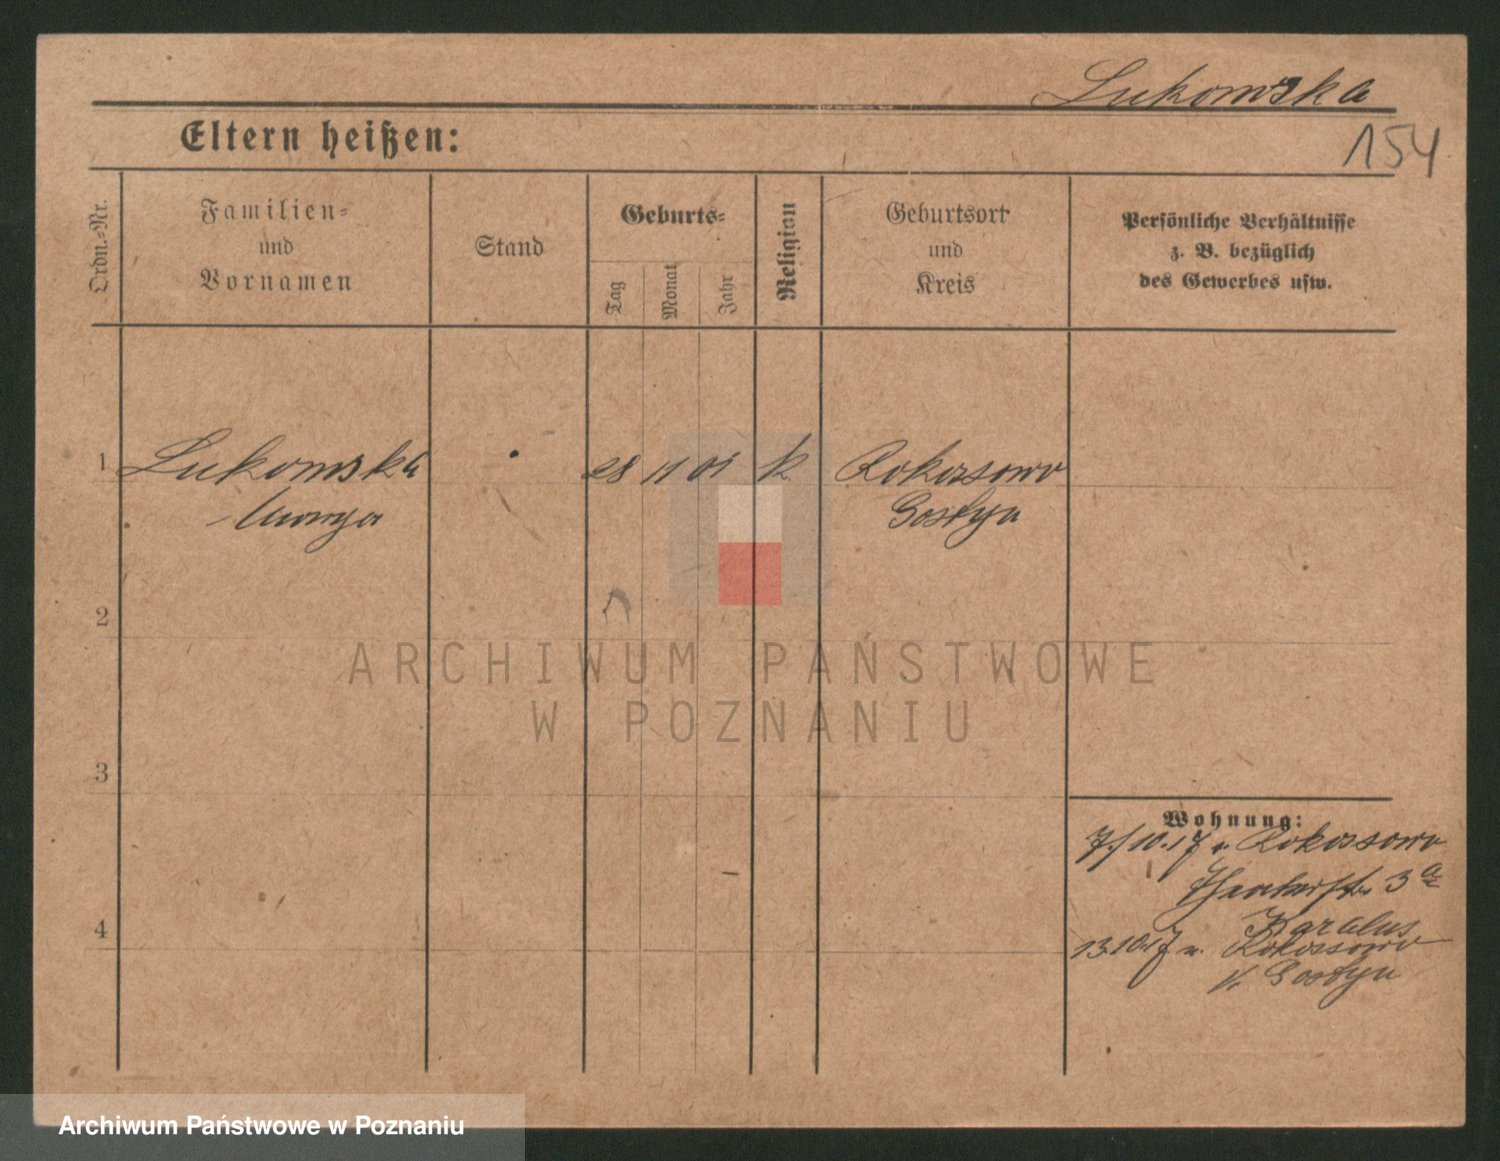 Lukomska
154
Eltern heißen:
Ordn.-Nr.
Familien-
und
Vornamen
Stand
Geburts-
Tag
Monat
Jahr
Religion
Geburtsort
und
Kreis
Persönliche Verhältnisse
z. B. bezüglich
des Gewerbes usw.
1 Lukomska 28 11 01 k Rokossowo
Gostyn
2
3
4
Wohnung:
7/10.17 v. Rokossowo
3a
13.10.17 n. Rokossowo
Gostyn
ARCHIWUM PAŃSTWOWE
W POZNANIU
Archiwum Państwowe w Poznaniu